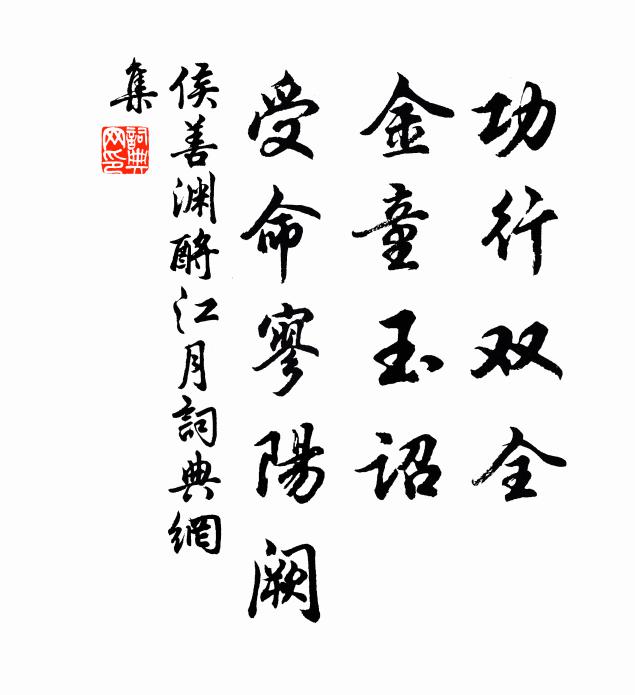 功行双全
金童玉詔
受命寥陽闕
侯善渊酹江月詞典網
集
詞典
网印